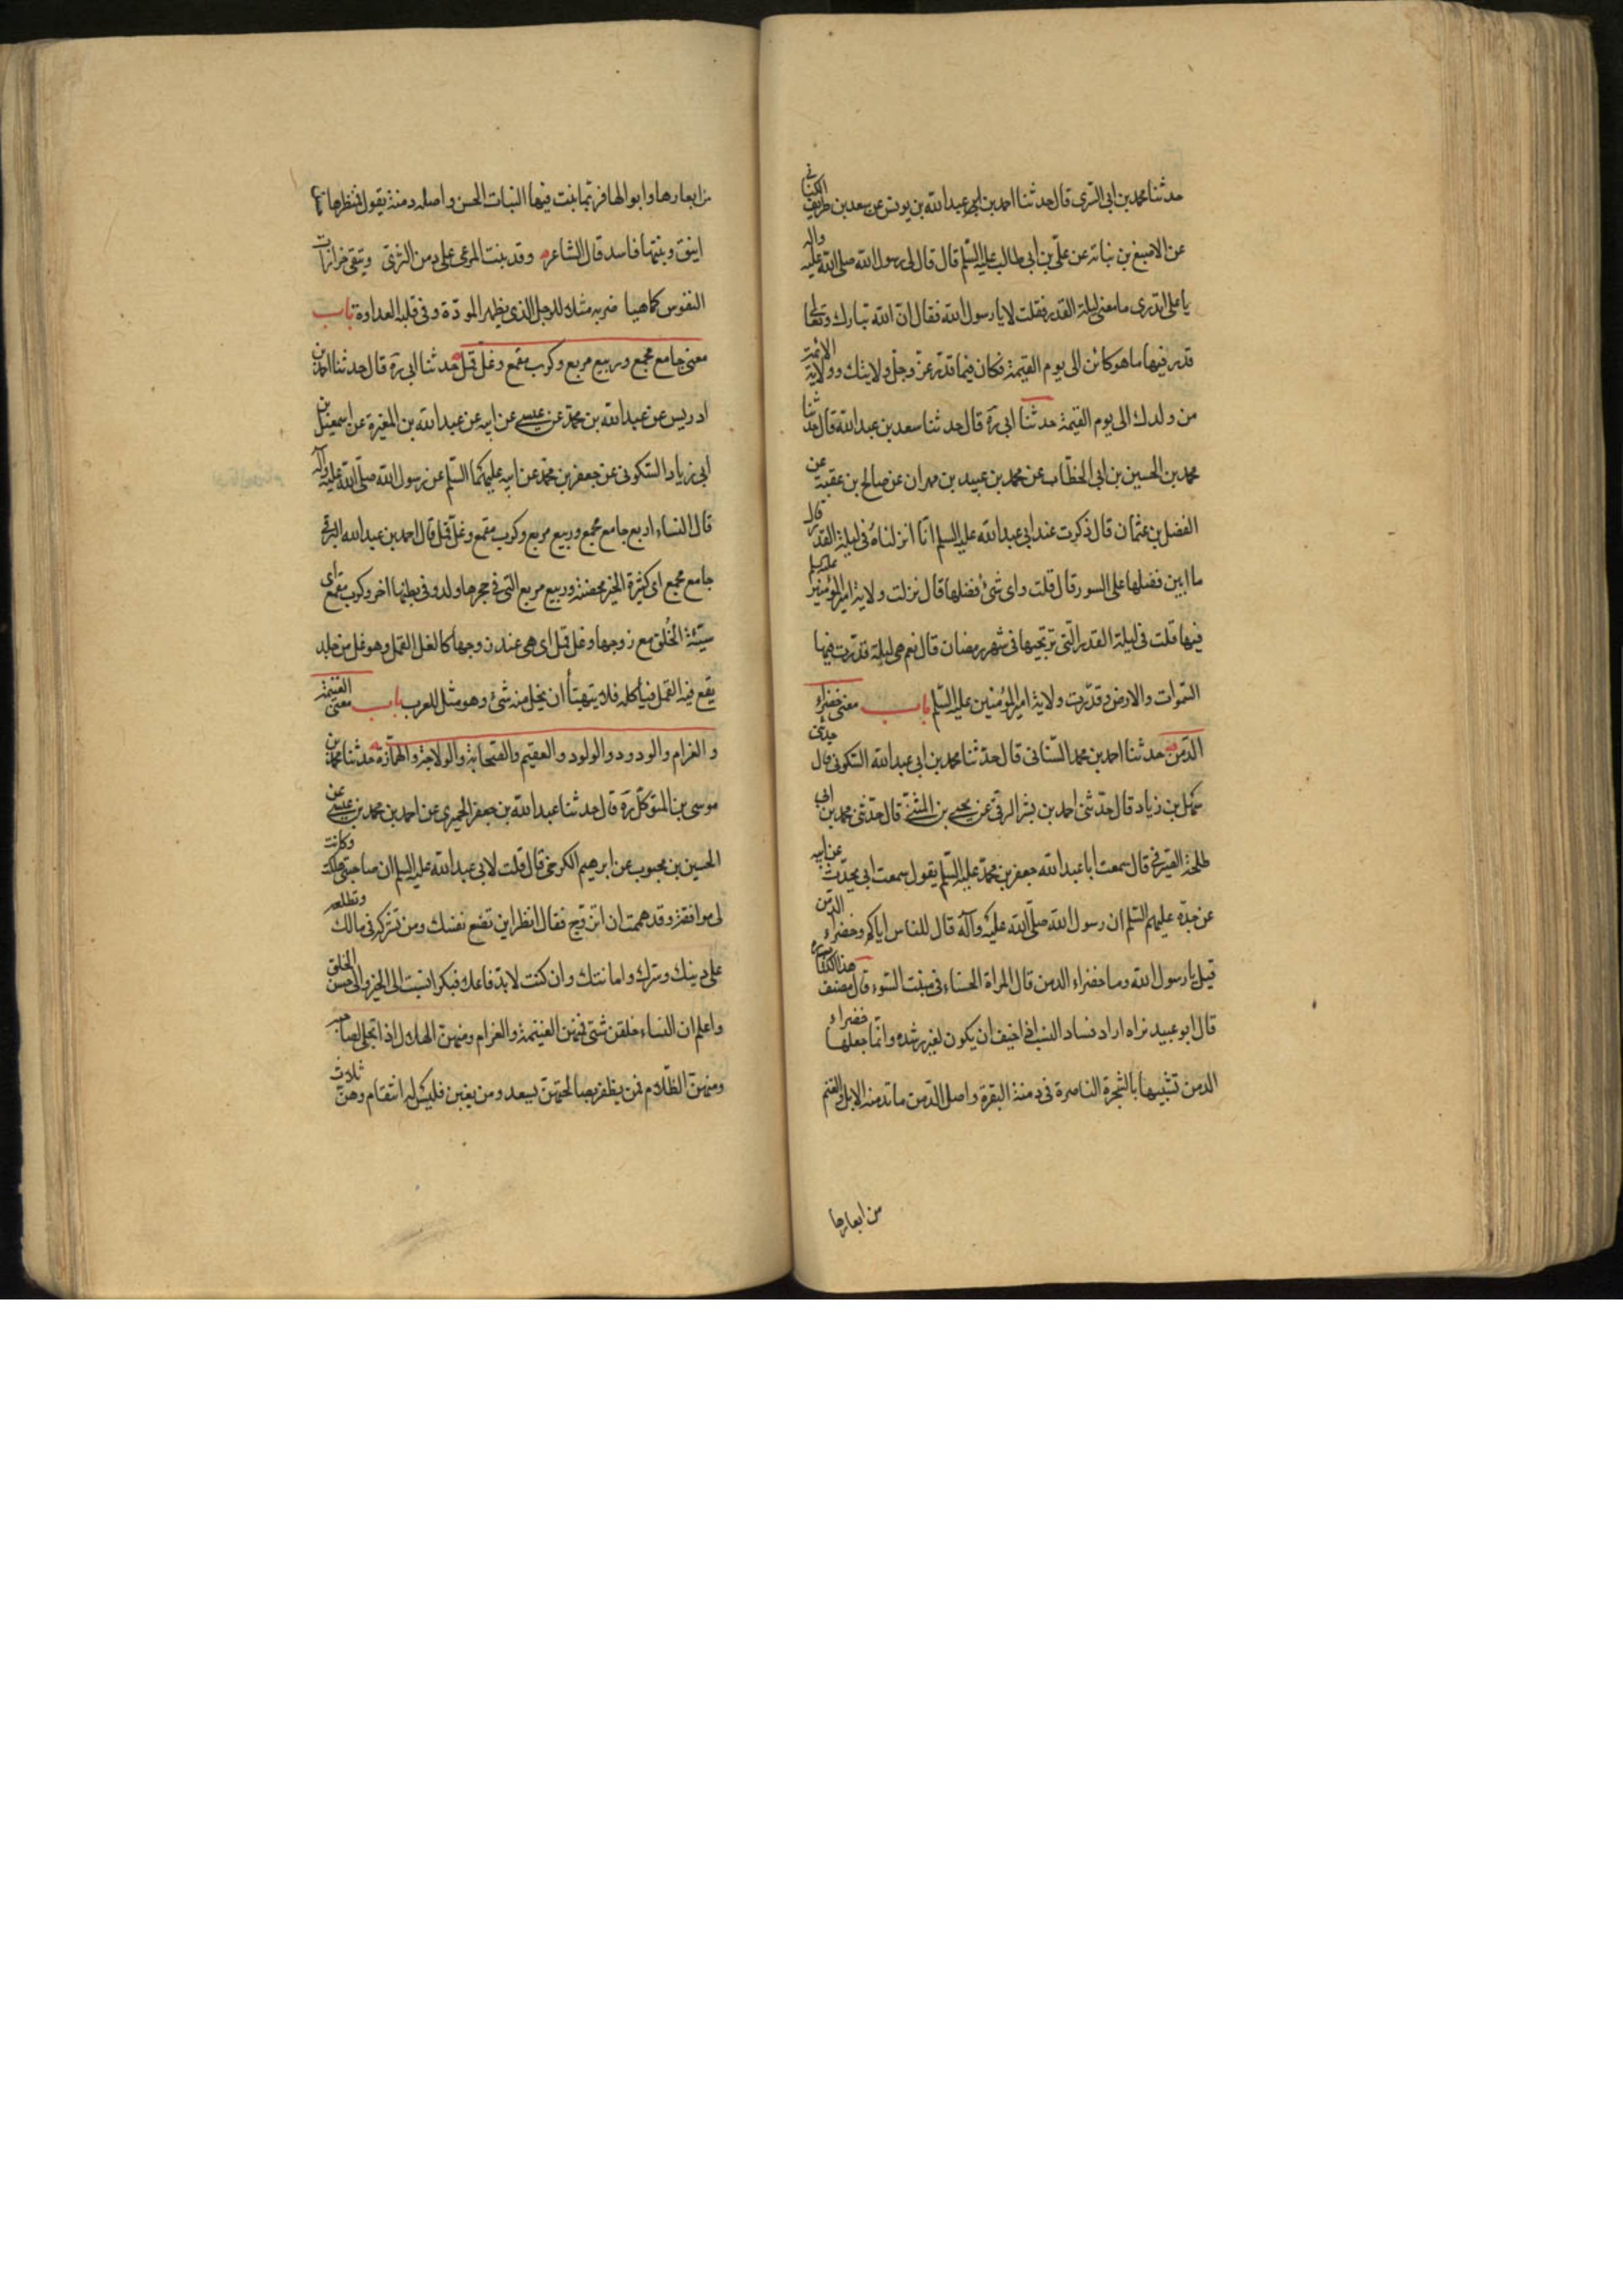 حدثنا محمد بن ابی السری قال حدثنا احمد بن ابی عبد الله بن یونس عن سعد بن طریف الکنانی
عن الاصبغ بن نباته عن علی بن ابی طالب علیه السّلم قال قال لی رسول الله صلی الله علیه واله
یا علی اتدری ما معنی لیلة القدر فقلت لا یا رسول الله فقال انّ الله تبارک وتعالی
قدر فیها ما هو کائن الی یوم القیمة فکان فیما قدّر عزّ وجلّ ولایتک وولایة الائمة
من ولدک الی یوم القیمة حدثنا ابی ره قال حدثنا سعد بن عبد الله قال حدثنا
محمد بن الحسین بن ابی الخطّاب عن محمد بن عبید بن مهران عن صالح بن عقبة عن
الفضل بن عثمان قال ذکرت عند ابی عبد الله علیه السلم انّا انزلناه فی لیلة القدر قال
ما ابین فضلها علی السور قال قلت وای شیٔ فضلها قال نزلت ولایة امیر المؤمنین علیه السلم
فیها قلت فی لیلة القدر الّتی نرتجیها فی شهر رمضان قال نعم هی لیلة قدّرت فیها
السّموات والارض وقدّرت ولایة امیر المؤمنین علیه السّلم باب معنی خضراء
الدّمن حدثنا احمد بن محمد السّنانی قال حدّثنا محمد بن ابی عبد الله السکونی قال حدثنی
سهل بن زیاد قال حدّثنی احمد بن بشر الرقی عن یحیی بن المثنّی قال حدّثنی محمد بن ابی
طلحة الصیرفی قال سمعت ابا عبد الله جعفر بن محمّد علیه السّلم یقول سمعت ابی یحدّث عن ابیه
عن جدّه علیهم السّلم ان رسول الله صلّی الله علیه وآله قال للناس ایاکم وخضراء الدمن
قیل یا رسول الله وما خضراء الدمن قال المراة الحسناء فی منبت السّوء قال مصنف هذا الکتاب ره
قال ابو عبید نراه اراد فساد النسب اذا خیف ان یکون لغیر رشده وانّما جعلها خضراء
الدمن تشبیها بالشجرة الناضرة فی دمنة البقرة واصل الدّمن ما تدمنه الابل والغنم
من ابعارها
من ابعارها وابوالها فربّما ینبت فیها النبات الحسن واصله دمنة یقول فمنظرها
انیق ومنبتها فاسد قال الشاعر وقد ینبت المرعی علی دمن الثری وتبقی حزازات
النفوس کما هیا ضربه مثلا للرجل الذی یظهر المودّة وفی قلبه العداوة باب
معنی جامع مجمع وربیع مربع وکرب مقمع وغلّ قمل حدثنا ابی ره قال حدثنا احمد بن
ادریس عن عبد الله بن محمّد عن عیسی عن ابیه عن عبد الله بن المغیرة عن اسمعیل بن
ابی زیاد السّکونی عن جعفر بن محمّد عن ابیه علیهما السّلم عن رسول الله صلّی الله علیه وآله
قال النساء اربع جامع مجمع وربیع مربع وکرب مقمع وغلّ قمل قال احمد بن عبد الله البرقی
جامع مجمع ای کثیرة الخیر محصنة وربیع مربع التی فی حجرها ولد وفی بطنها اخر وکرب مقمع ای
سیّئة الخُلق مع زوجها وغل قمل ای هی عند زوجها کالغل القمل وهو غل من جلد
یقع فیه القمل فیأکله فلا یتهیأ ان یحل منه شیٔ وهو مثل للعرب باب معنی الغنیمة
والغرام والودود والولود والعقیم والصّخابة والولاجة والهمّازة حدثنا محمد بن
موسی بن المتوکّل ره قال حدثنا عبد الله بن جعفر الحمیری عن احمد بن محمد بن عیسی عن
الحسین بن محبوب عن ابرهیم الکرخی قال قلت لابی عبد الله علیه السلم ان صاحبتی هلکت وکانت
لی موافقة وقد هممت ان اتزوّج فقال انظر این تضع نفسک ومن تشرکه فی مالک وتطلعه
علی دینک وسرّک وامانتک وان کنت لا بدّ فاعلا فبکرا تنسب الی الخیر والی حسن الخلق
واعلم ان النساء خلقن شتی فمنهن الغنیمة والغرام ومنهنّ الهلال اذا تجلی لصاحبه
ومنهنّ الظّلام فمن یظفر بصالحتهنّ یسعد ومن یغبن فلیس له انتقام وهنّ ثلاث